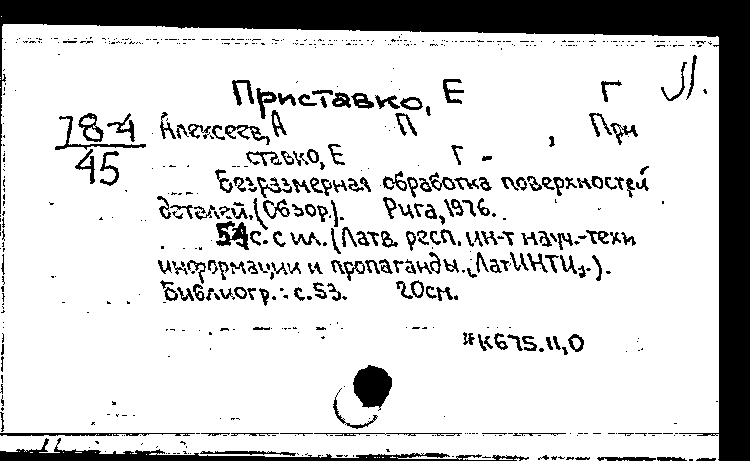 Приставко, Е Г Л.
78-4
45
Алексеев, А П , При
ставко, Е Г -
Безразмерная обработка поверхностей
деталей. (Обзор). Рига, 1976.
54с. с ил. (Латв. респ. ин-т науч.-техн
информации и пропаганды. „ЛатИНТИ„.).
Библиогр.: с.53. 20см.
*К675.11,0